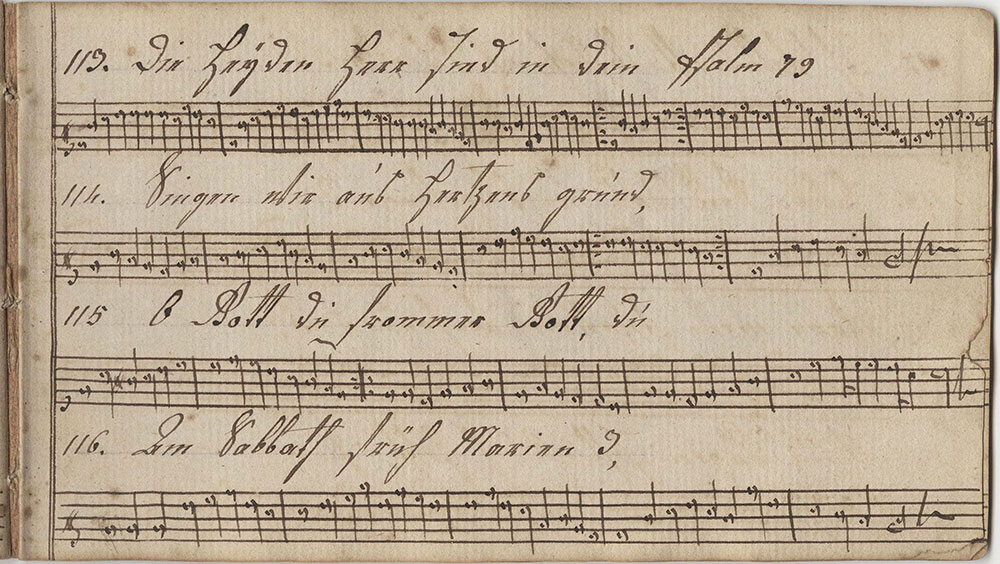 113. Die Heÿden Herr sind in dein Psalm 79
114. Singen wir aus Hertzens grund,
115 O Gott du frommer Gott, du
116. Am Sabbath früh Marien 3,